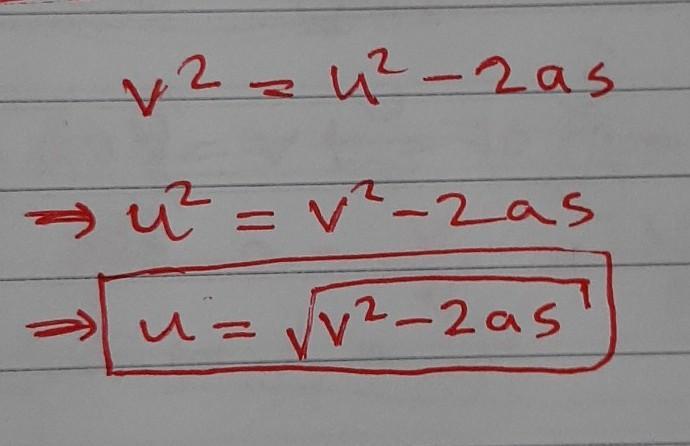 v² = u² - 2as
⇒ u² = v² - 2as
⇒ u = √(v² - 2as)